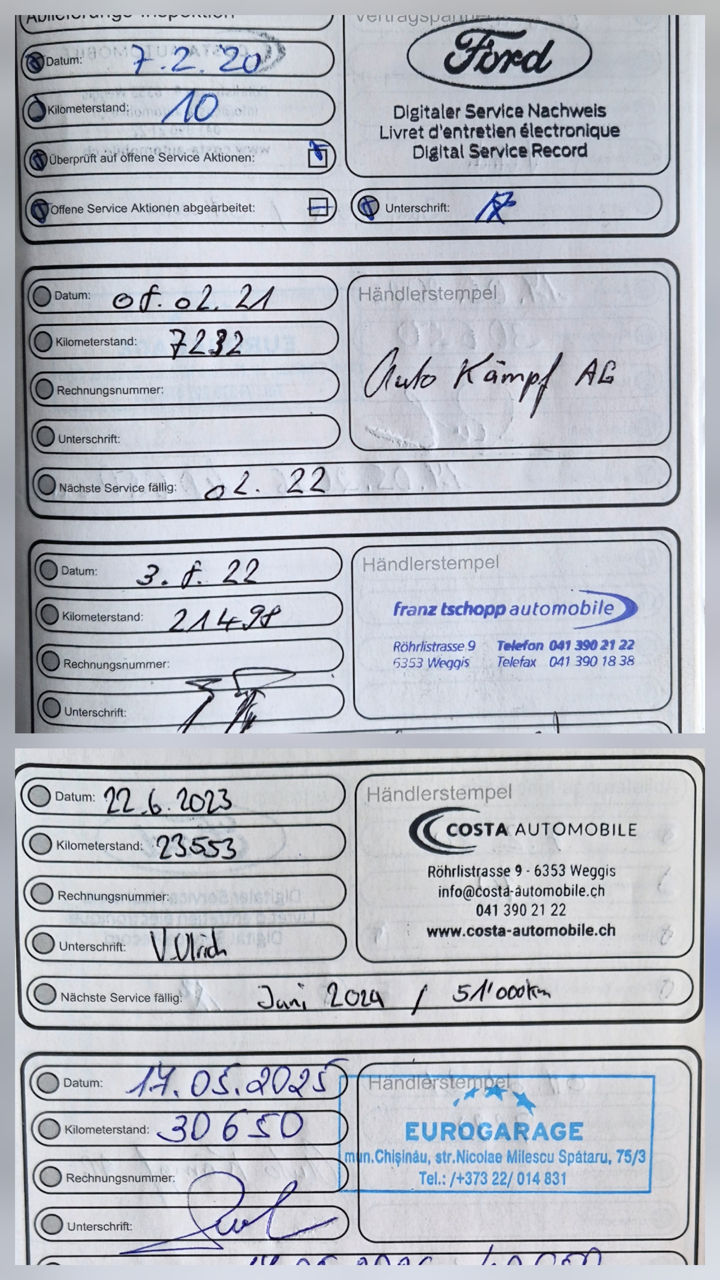 Ablieferungs-Inspektion
Vertragspartner
Datum: 7.2.'20
Kilometerstand: 10
Überprüft auf offene Service Aktionen:
Offene Service Aktionen abgearbeitet:
Ford
Digitaler Service Nachweis
Livret d'entretien électronique
Digital Service Record
Unterschrift:
Datum: 08.02.21
Kilometerstand: 7232
Rechnungsnummer:
Unterschrift:
Nächste Service fällig: 02.22
Händlerstempel
Auto Kämpf AG
Datum: 3.8.22
Kilometerstand: 21498
Rechnungsnummer:
Unterschrift:
Händlerstempel
franz tschopp automobile
Röhrlistrasse 9 Telefon 041 390 21 22
6353 Weggis Telefax 041 390 18 38
Datum: 22.6.2023
Kilometerstand: 23553
Rechnungsnummer:
Unterschrift: V.Ulrich
Nächste Service fällig: Juni 2024 / 51'000km
Händlerstempel
COSTA AUTOMOBILE
Röhrlistrasse 9 - 6353 Weggis
info@costa-automobile.ch
041 390 21 22
www.costa-automobile.ch
Datum: 17.05.2025
Kilometerstand: 30650
Rechnungsnummer:
Unterschrift:
Händlerstempel
EUROGARAGE
mun.Chișinău, str.Nicolae Milescu Spătaru, 75/3
Tel.: /+373 22/ 014 831